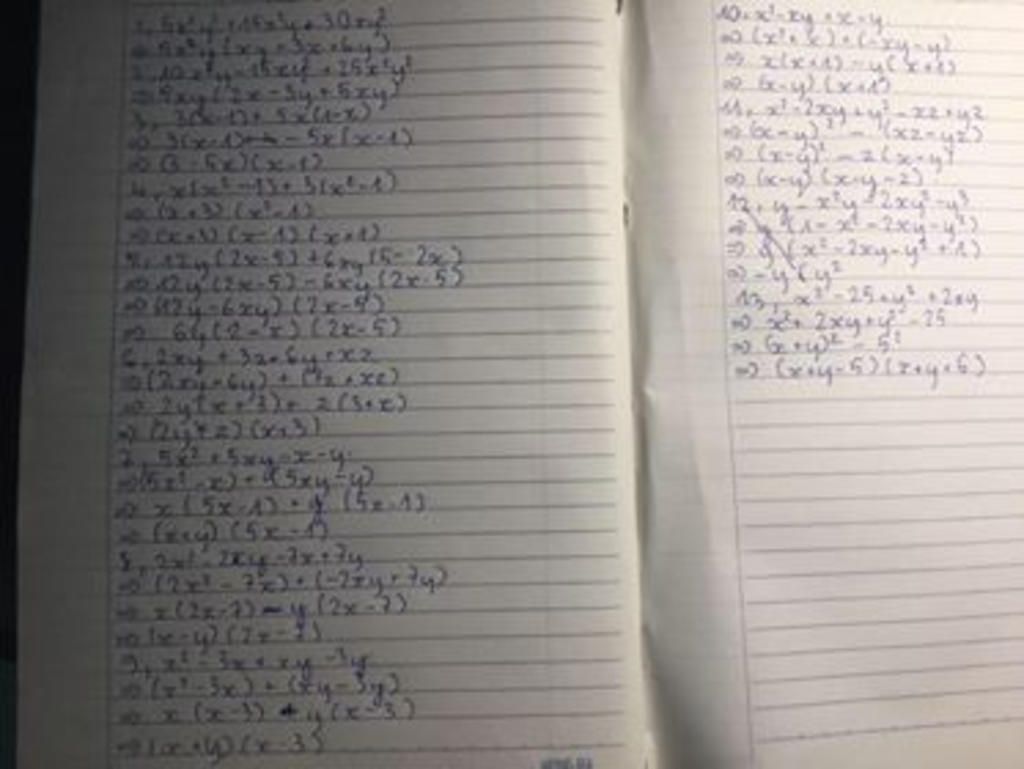 1, 5x²y² + 15x²y + 30xy²
⇒ 5x²y (xy + 3x + 6y)
2, 10x²y - 15xy² + 25x²y²
⇒ 5xy (2x - 3y + 5xy)
3, 3(x-1) + 5x(1-x)
⇒ 3(x-1) - 5x(x-1)
⇒ (3 - 5x)(x-1)
4, x(x² - 1) + 3(x² - 1)
⇒ (x+3) (x² - 1)
⇒ (x+3) (x-1) (x+1)
5, 12y (2x-5) + 6xy (5 - 2x)
⇒ 12y (2x-5) - 6xy (2x-5)
⇒ (12y - 6xy) (2x-5)
⇒ 6y (2 - x) (2x-5)
6, 2xy + 3z + 6y + xz
⇒ (2xy + 6y) + (3z + xz)
⇒ 2y (x + 3) + z (3+x)
⇒ (2y + z) (x+3)
7, 5x² + 5xy - x - y
⇒ (5x² - x) + (5xy - y)
⇒ x (5x-1) + y (5x-1)
⇒ (x+y) (5x-1)
8, 2x² - 2xy - 7x + 7y
⇒ (2x² - 7x) + (-2xy + 7y)
⇒ x (2x-7) - y (2x-7)
⇒ (x-y) (2x-7)
9, x² - 3x + xy - 3y
⇒ (x² - 3x) + (xy - 3y)
⇒ x (x-3) + y (x-3)
⇒ (x+y) (x-3)
10, x² - xy + x - y
⇒ (x² + x) + (-xy - y)
⇒ x(x+1) - y(x+1)
⇒ (x-y) (x+1)
11, x² - 2xy + y² - xz + yz
⇒ (x-y)² - (xz - yz)
⇒ (x-y)² - z (x+y)
⇒ (x-y) (x+y-z)
12, y - x²y - 2xy² - y³
⇒ y (1 - x² - 2xy - y²)
⇒ y (x² - 2xy - y² + 1)
13, x² - 25 + y² + 2xy
⇒ x² + 2xy + y² - 25
⇒ (x+y)² - 5²
⇒ (x+y-5) (x+y+5)